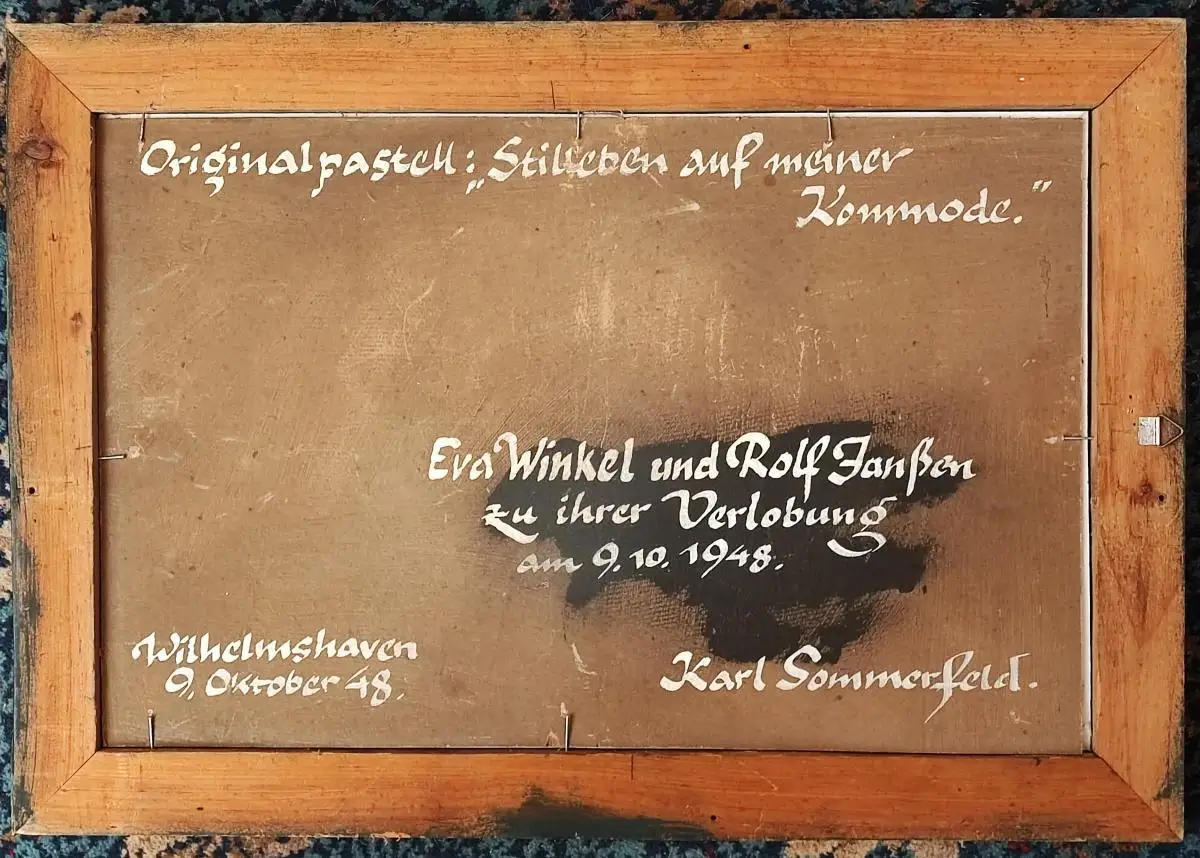 Originalpastell: „Stilleben auf meiner
Kommode."
Eva Winkel und Rolf Janßen
zu ihrer Verlobung
am 9.10.1948.
Wilhelmshaven
9. Oktober 48.
Karl Sommerfeld.